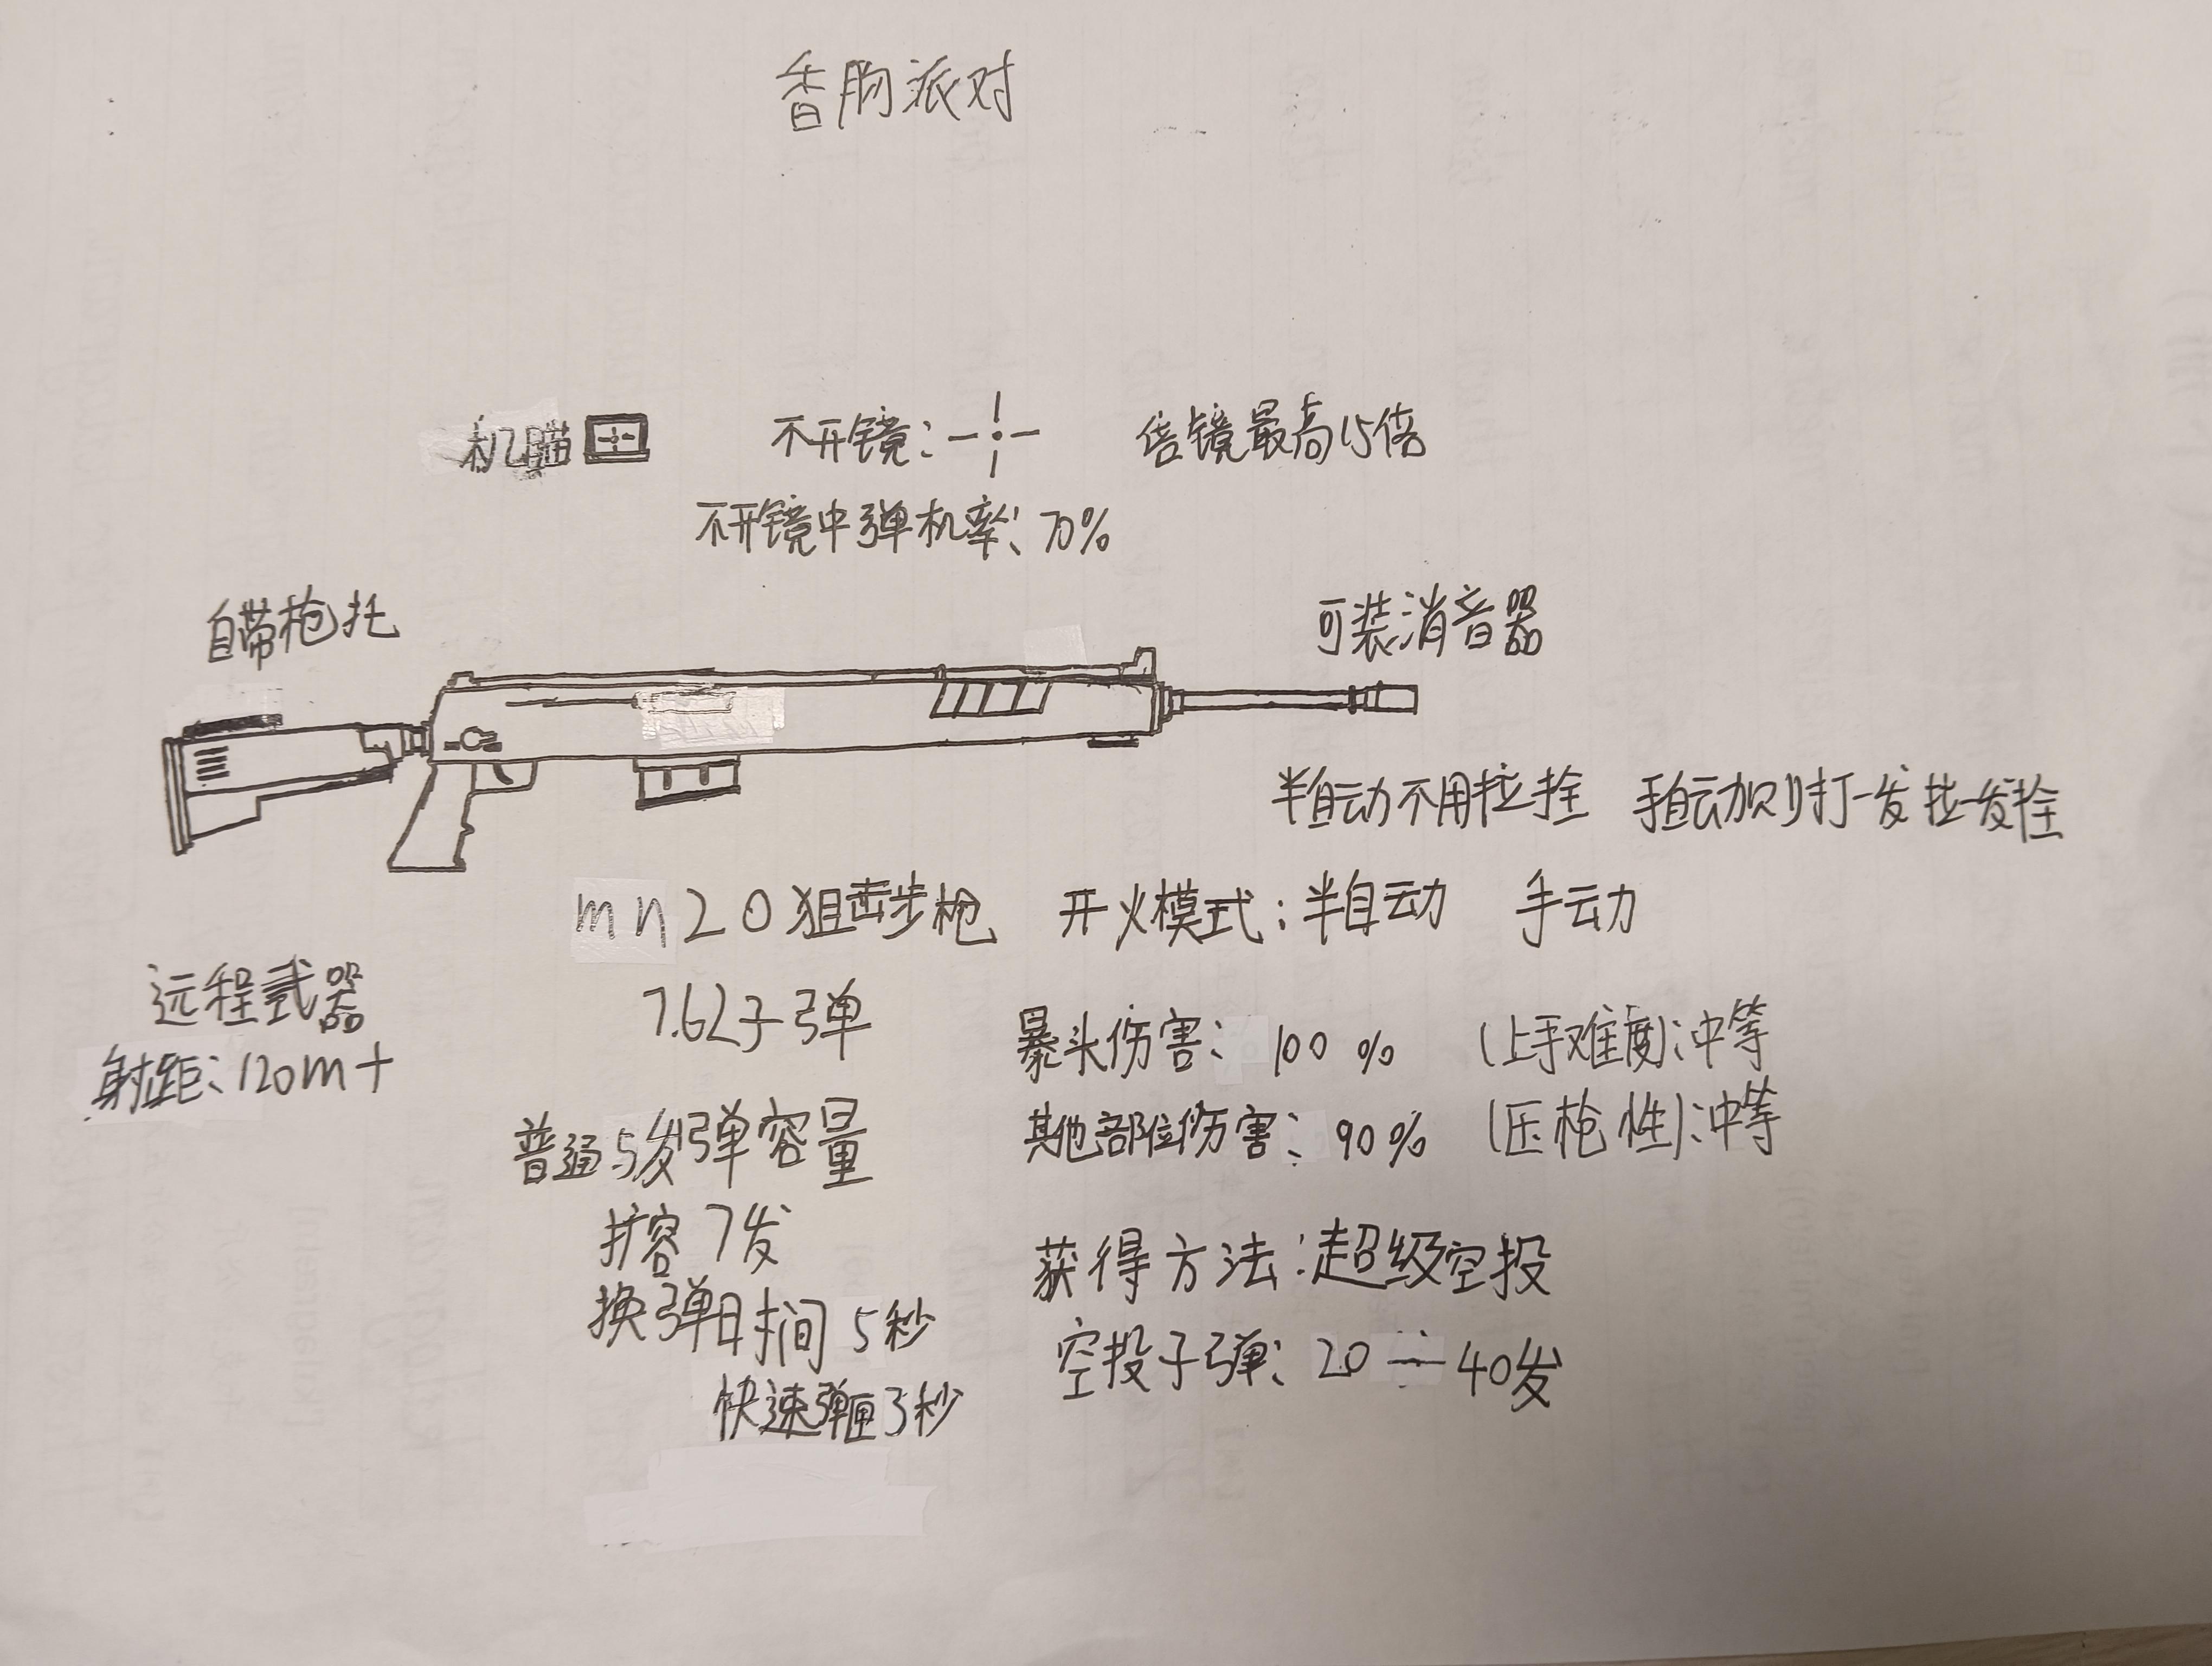 香肠派对
机瞄 不开镜: 倍镜最高15倍
不开镜中弹机率: 70%
自带枪托
可装消音器
半自动不用拉拴 手自动加则打一发拉一发拴
mn20狙击步枪 开火模式:半自动 手动
远程武器
射距:120m+
7.62子弹
暴头伤害: 100% (上手难度):中等
普通5发弹容量
其他部位伤害: 90% (压枪性):中等
扩容7发
获得方法:超级空投
换弹时间5秒
空投子弹: 20—40发
快速弹匣3秒